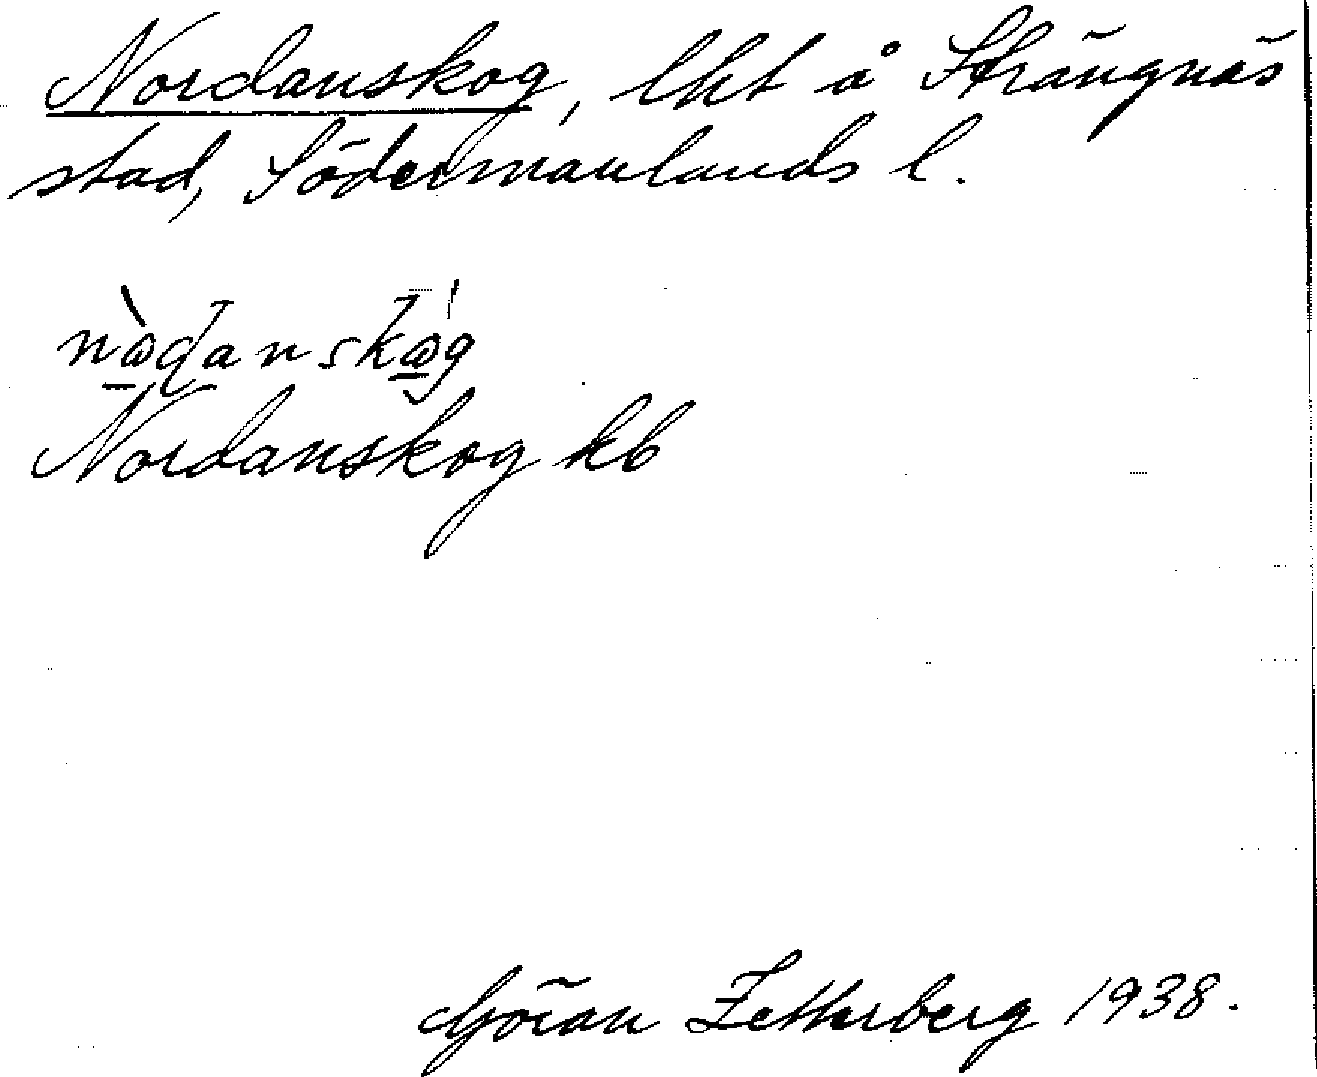 Nordanskog, lht å Strängnäs
stad, Södermanlands l.
Nordanskog kb
Göran Zetterberg 1938.